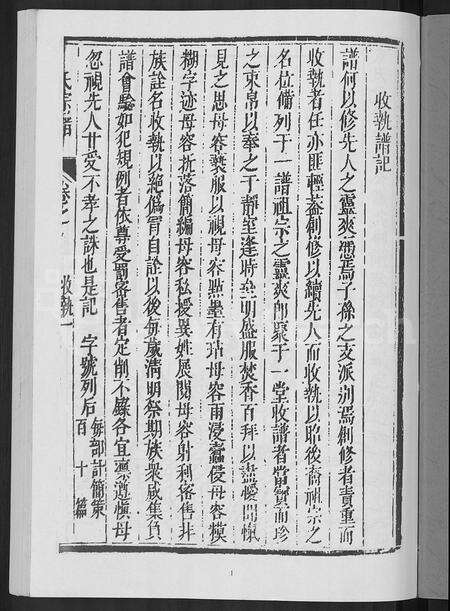 收執譜記
譜何以修先人之靈爽憑焉子孫之支派別焉創修者責重而
收執者任亦匪輕蓋創修以續先人而收執以昭後裔祖宗之
名位備列于一譜祖宗之靈爽即聚于一堂收譜者當寶而珍
之束帛以奉之于靜室逢時至明盛服焚香百拜以盡愾聞
見之思毋容褻服以視毋容點墨有玷毋容雨浸蠹侵毋容模
糊字迹毋容拆落簡編毋容私授異姓展閱毋容射利容售非
族詮名收執以絕偽冒自詮以後每歲清明祭期族衆咸集負
譜會驗如犯規例者依尊受罰容售者定削不錄各宜凛遵慎毋
忽視先人甘受不孝之誅也是記 字號列后 每部計簡策 百十篇
氏宗譜 卷之一 收執一
1